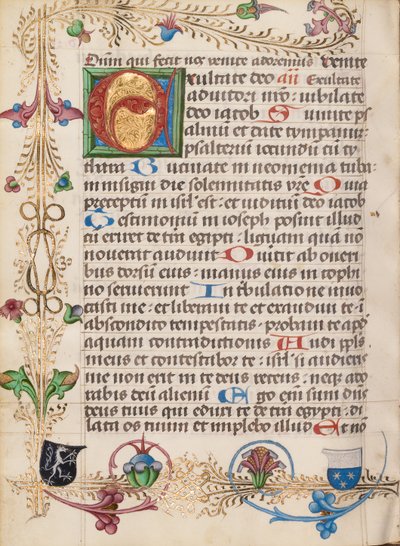 Dn̄m qui fecit nos venite adoremus venite
Exultate deo an̄ Exultate
adiutori nr̄o: iubilate
deo iacob Sumite ps
almū et date tympanum:
psalterium iocundū cū cy
thara Bucinate in neomenia tuba:
in insigni die solemnitatis vr̄e Quia
preceptū in isrl̄ est: et iuditiū deo iacob
Testimoniū in ioseph posuit illud
cū exiret de tr̄a egipti: liguam quā nō
noverat audivit Divertit ab oneri
bus dorsum eius: manus eius in cophi
no servierunt In tribulatione invo
casti me: et liberavi te et exaudivi te: ī
abscondito tempestatis: probavi te apđ
aquam contradictionis Audi ppl̄s
meus et contestabor te: isrl̄ si audieris
me non erit in te deus recens: neqȝ ado
rabis deū alienū Ego enī sum dn̄s
deus tuus qui eduxi te de tr̄a egypti: di
lata os tuum et implebo illud Et nō